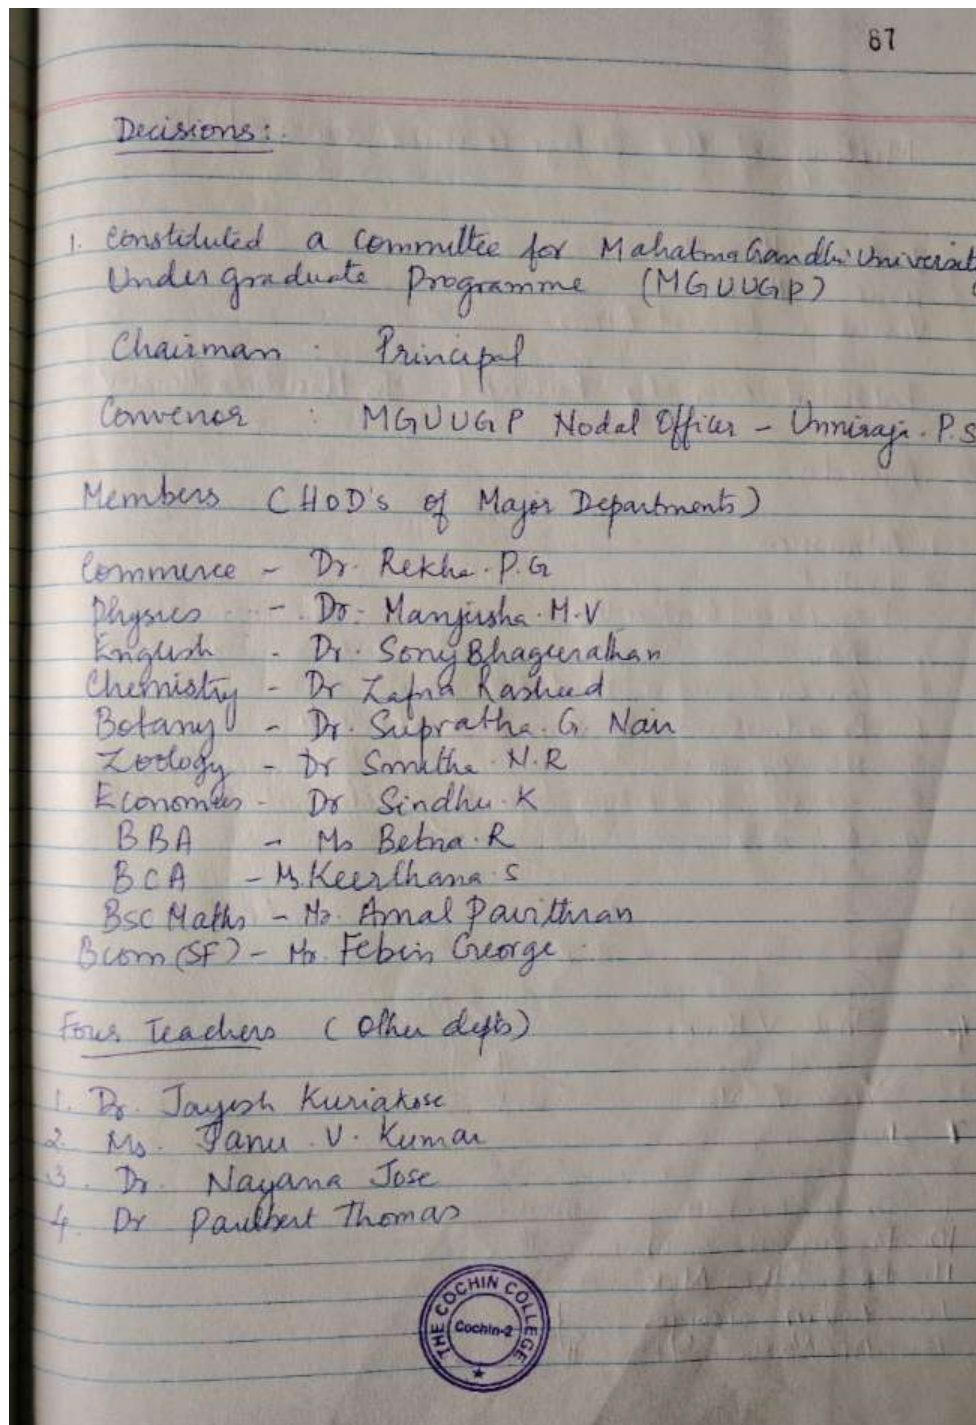 87
Decisions:
1. Constituted a Committee for Mahatma Gandhi Universit
Under graduate Programme (MGUUGP)
Chairman . Principal
Convenor : MGUUGP Nodal Officer - Unniraja. P.S
Members (HOD's of Major Departments)
Commerce - Dr. Rekha. P.G
Physics - Dr. Manjusha. M.V
English - Dr. Sony Bhageerathan
Chemistry - Dr Zafna Rasheed
Botany - Dr. Supratha. G. Nair
Zoology - Dr Smitha N.R
Economics - Dr Sindhu. K
BBA - Ms Betna. R
BCA - Ms Keerthana. S
BSC Maths - Mr. Amal Pavithran
Bcom (SF) - Mr. Febin George
Four Teachers (Other depts)
1. Dr. Jayesh Kuriakose
2. Ms. V. Kumar
3. Dr. Nayana Jose
4. Dr Paulbert Thomas
THE COCHIN COLLEGE
Cochin-2